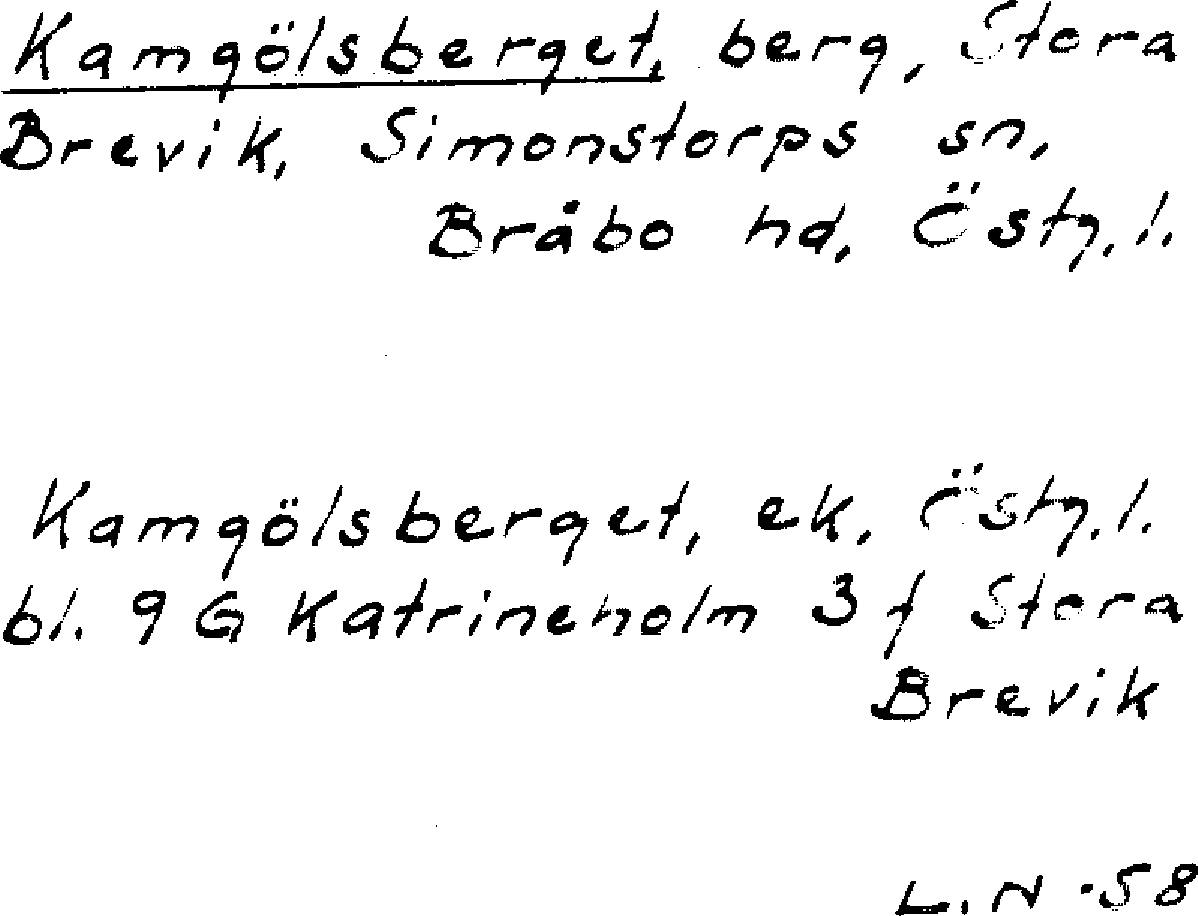 Kamgölsberget, berg, Stora
Brevik, Simonstorps sn,
Bråbo hd, Östg.l.
Kamgölsberget, ek. Östg.l.
bl. 9 G Katrineholm 3 f Stora
Brevik
L.N -58